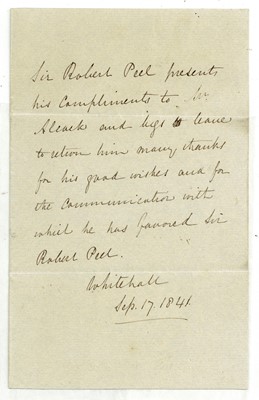 Sir Robert Peel presents
his Compliments to Mr
Alcock and begs leave
to return him many thanks
for his good wishes and for
the Communication with
which he has favored Sir
Robert Peel.
Whitehall
Sep. 17. 1841.